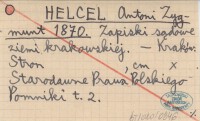 HELCEL Antoni Zyg-
munt 1870. Zapiski sądowe
ziemi krakowskiej. – Kraków.
Stron , cm x
Starodawne Prawa Polskiego
Pomniki t. 2.